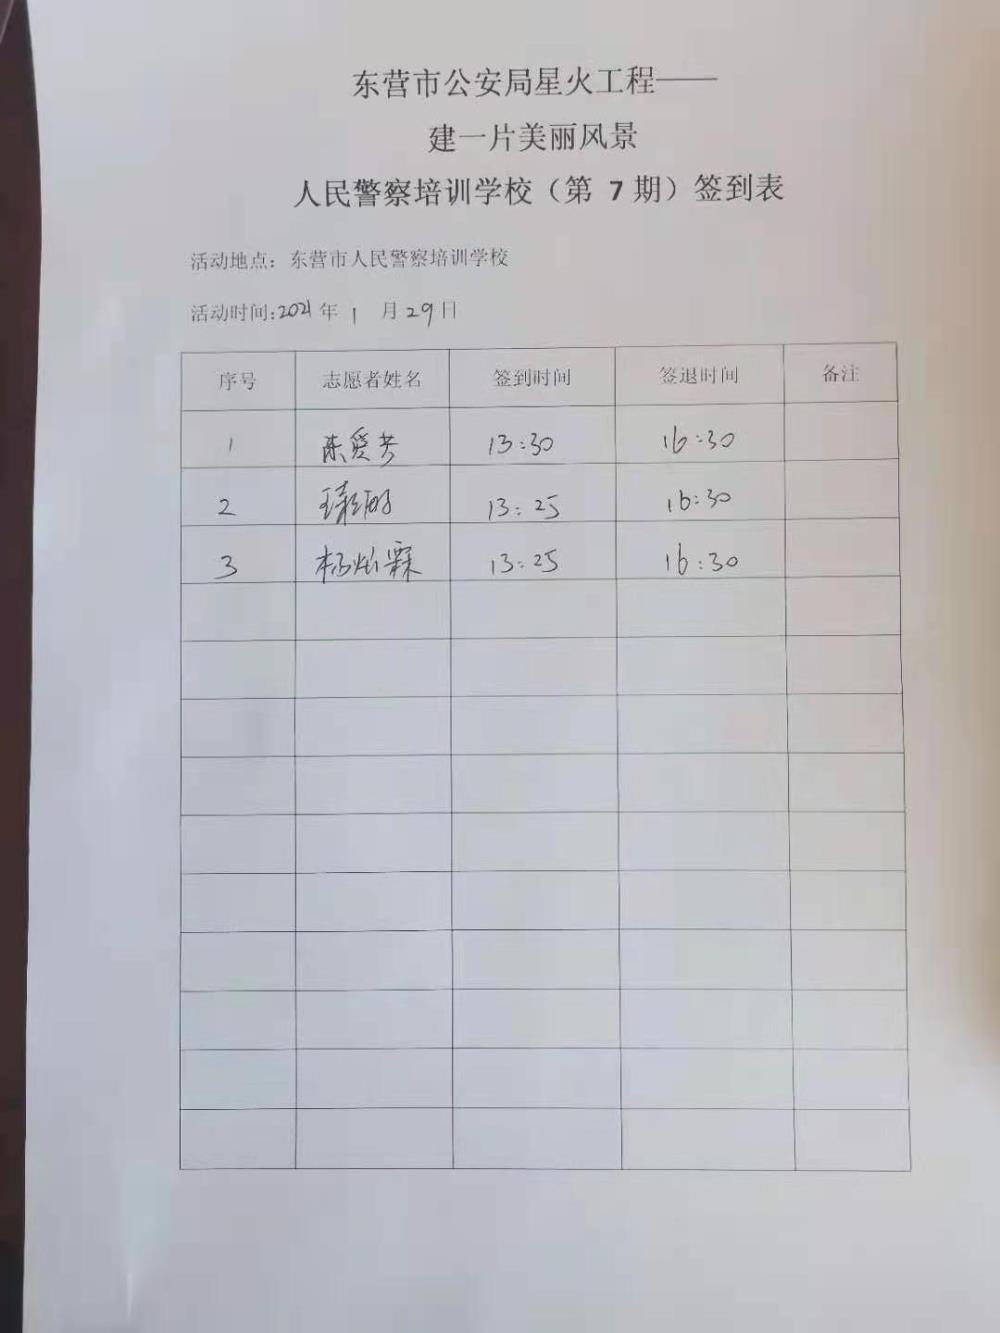 东营市公安局星火工程——
建一片美丽风景
人民警察培训学校（第 7 期）签到表
活动地点：东营市人民警察培训学校
活动时间:2021年 1 月29日
序号 志愿者姓名 签到时间 签退时间 备注
1 陈爱芳 13:30 16:30
2 13:25 16:30
3 13:25 16:30